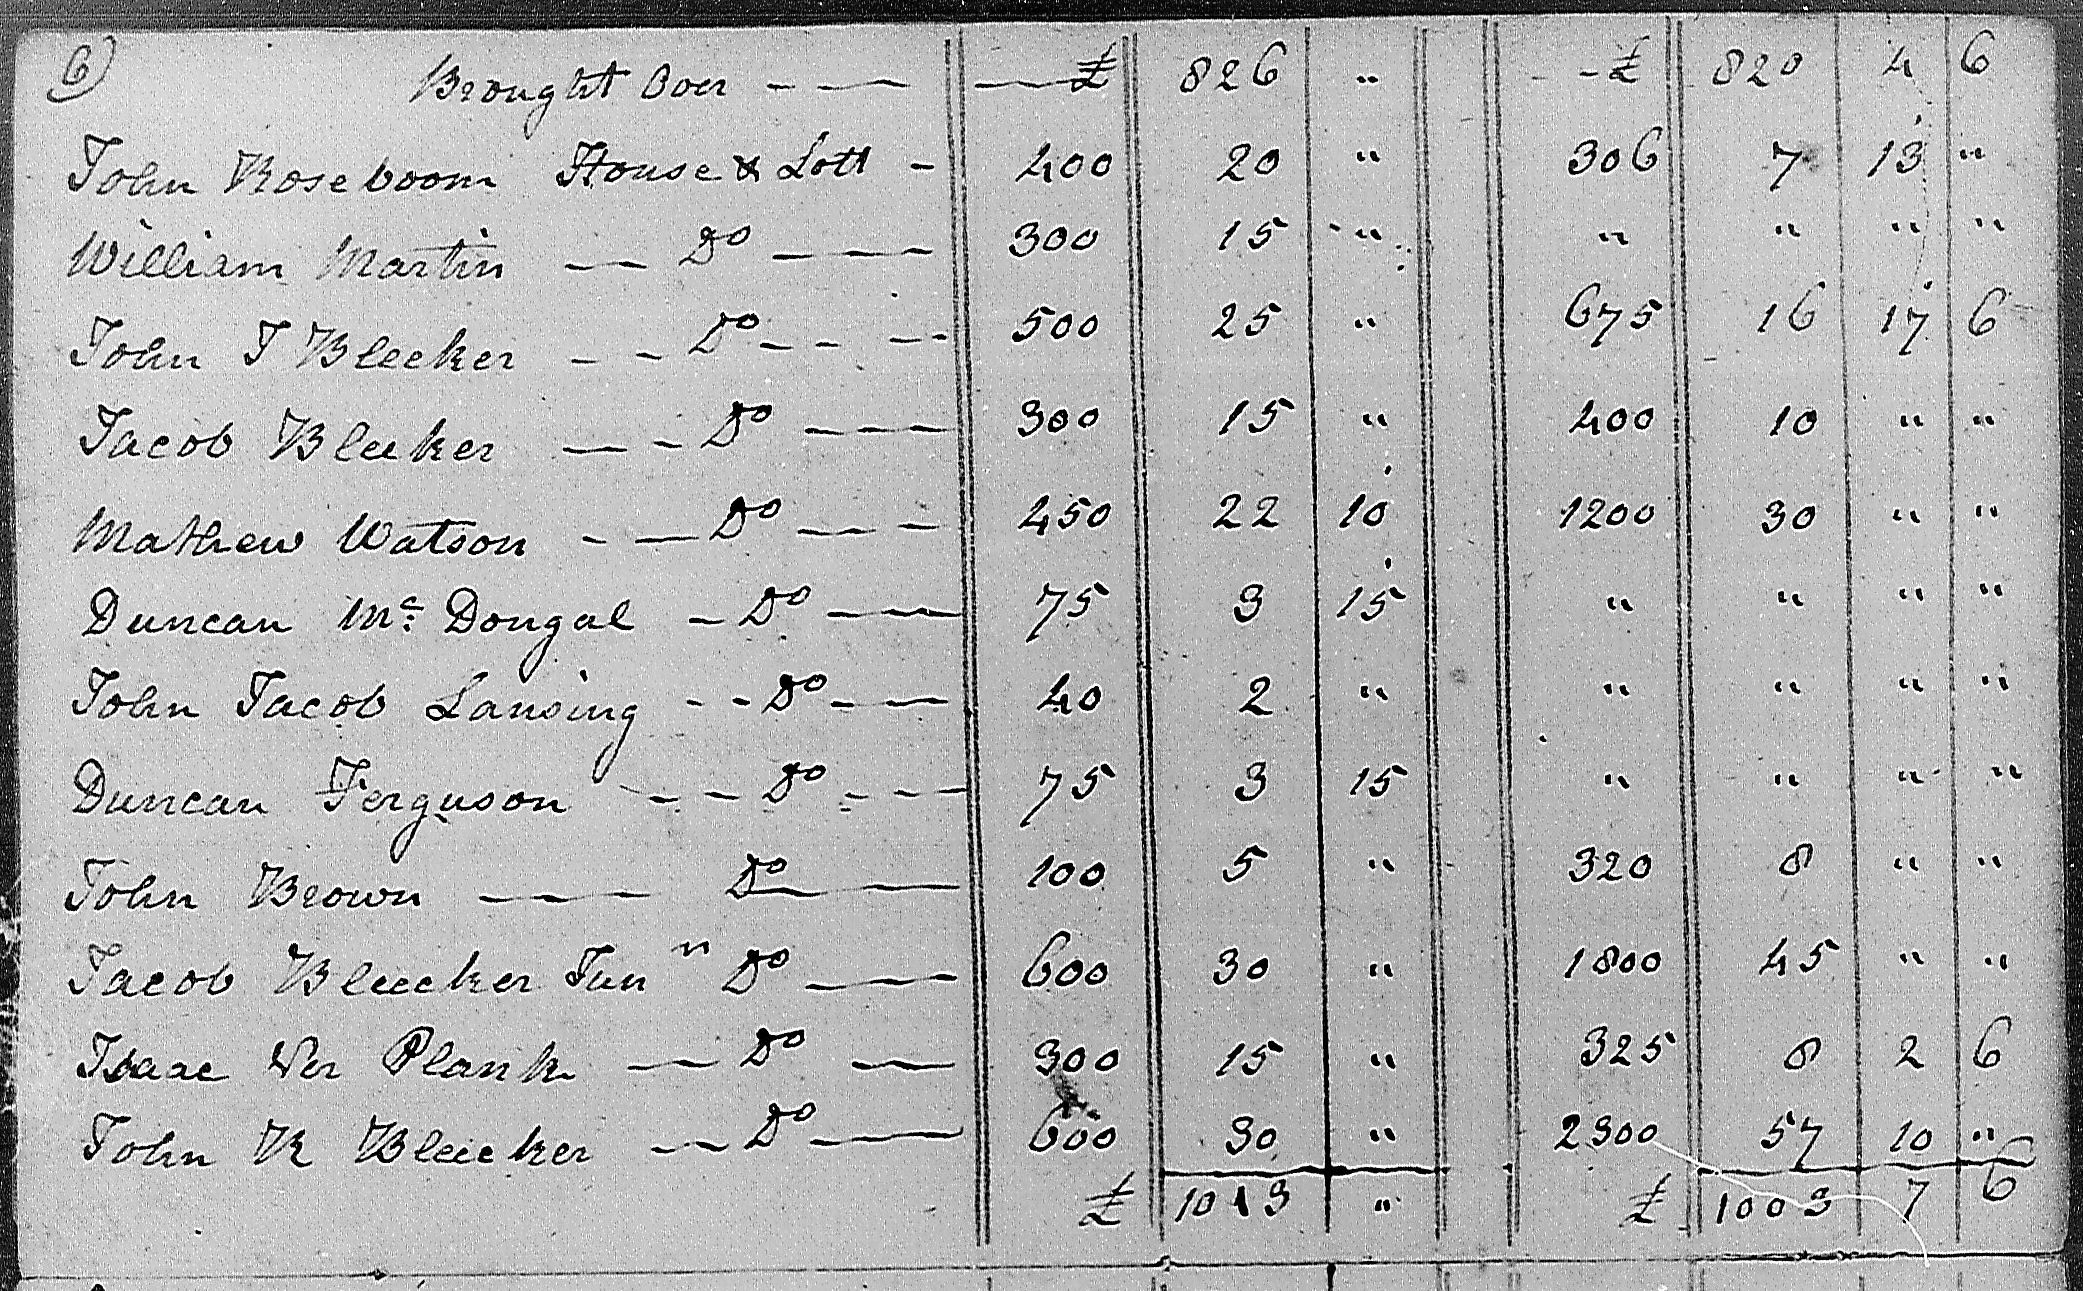 6)
Brought Over - — — — £ 826 " - - £ 820 4 6
John Roseboom House & Lott - 400 20 " 306 7 13 "
William Martin — — Do — — 300 15 " " " " "
John J Bleeker - - Do - - - - 500 25 " 675 16 17 6
Jacob Bleeker — - Do — — — 300 15 " 400 10 " "
Mathew Watson - — Do — — - 450 22 10 1200 30 " "
Duncan Mc Dougal - Do — — 75 3 15 " " " "
John Jacob Lansing - - Do - — 40 2 " " " " "
Duncan Ferguson - - - Do - - - - 75 3 15 " " " "
John Brown — — — Do — 100 5 " 320 8 " "
Jacob Bleecker Junr Do — — 600 30 " 1800 45 " "
Isaac Ver Plank — - Do — 300 15 " 325 8 2 6
John R Bleecker - — Do — 600 30 " 2300 57 10 "
£ 1013 " £ 1003 7 6